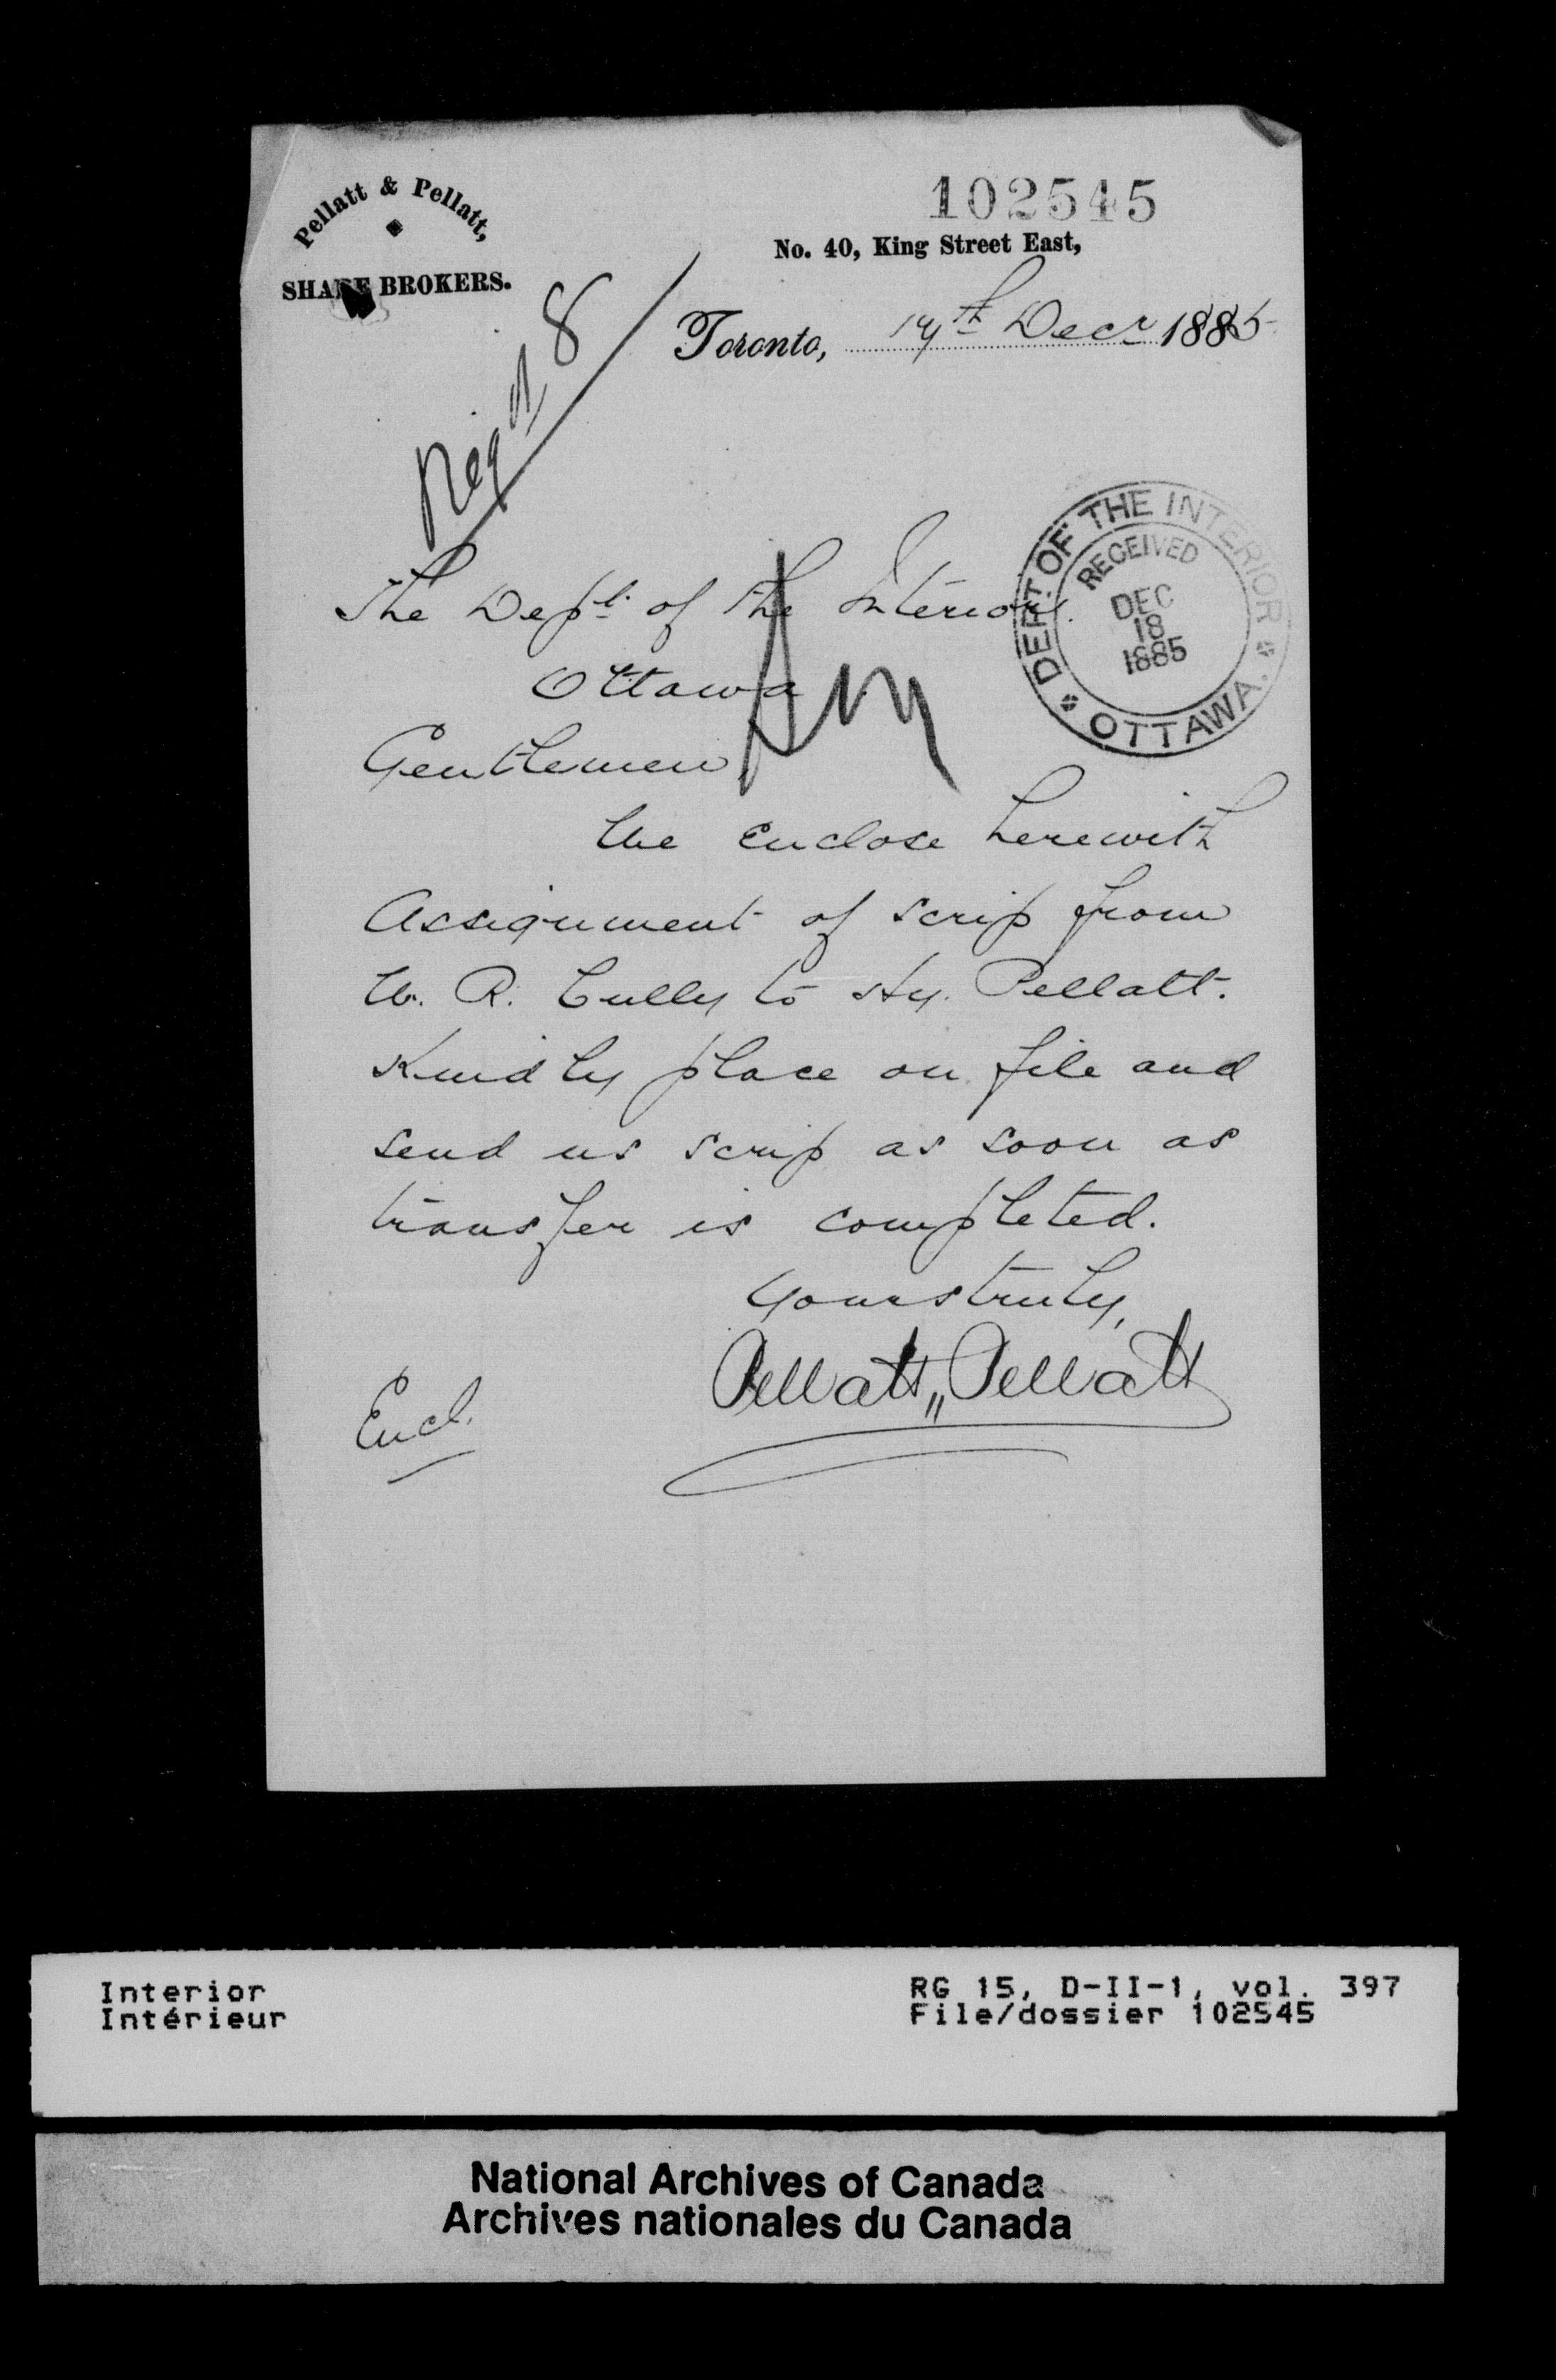 Pellatt & Pellatt,
SHARE BROKERS.
102545
No. 40, King Street East,
Toronto, 17th Decr 1885
Reg'd 8
The Dept. of the Interior.
Ottawa
DEPT OF THE INTERIOR
RECEIVED
DEC
18
1885
OTTAWA.
Gentlemen
We Enclose herewith
Assignment of scrip from
W. R. Cully to Hy. Pellatt.
Kindly place on file and
send us scrip as soon as
transfer is completed.
Yours truly,
Pellatt " Pellatt
Encl.
Interior
Intérieur
RG 15, D-II-1, vol. 397
File/dossier 102545
National Archives of Canada
Archives nationales du Canada